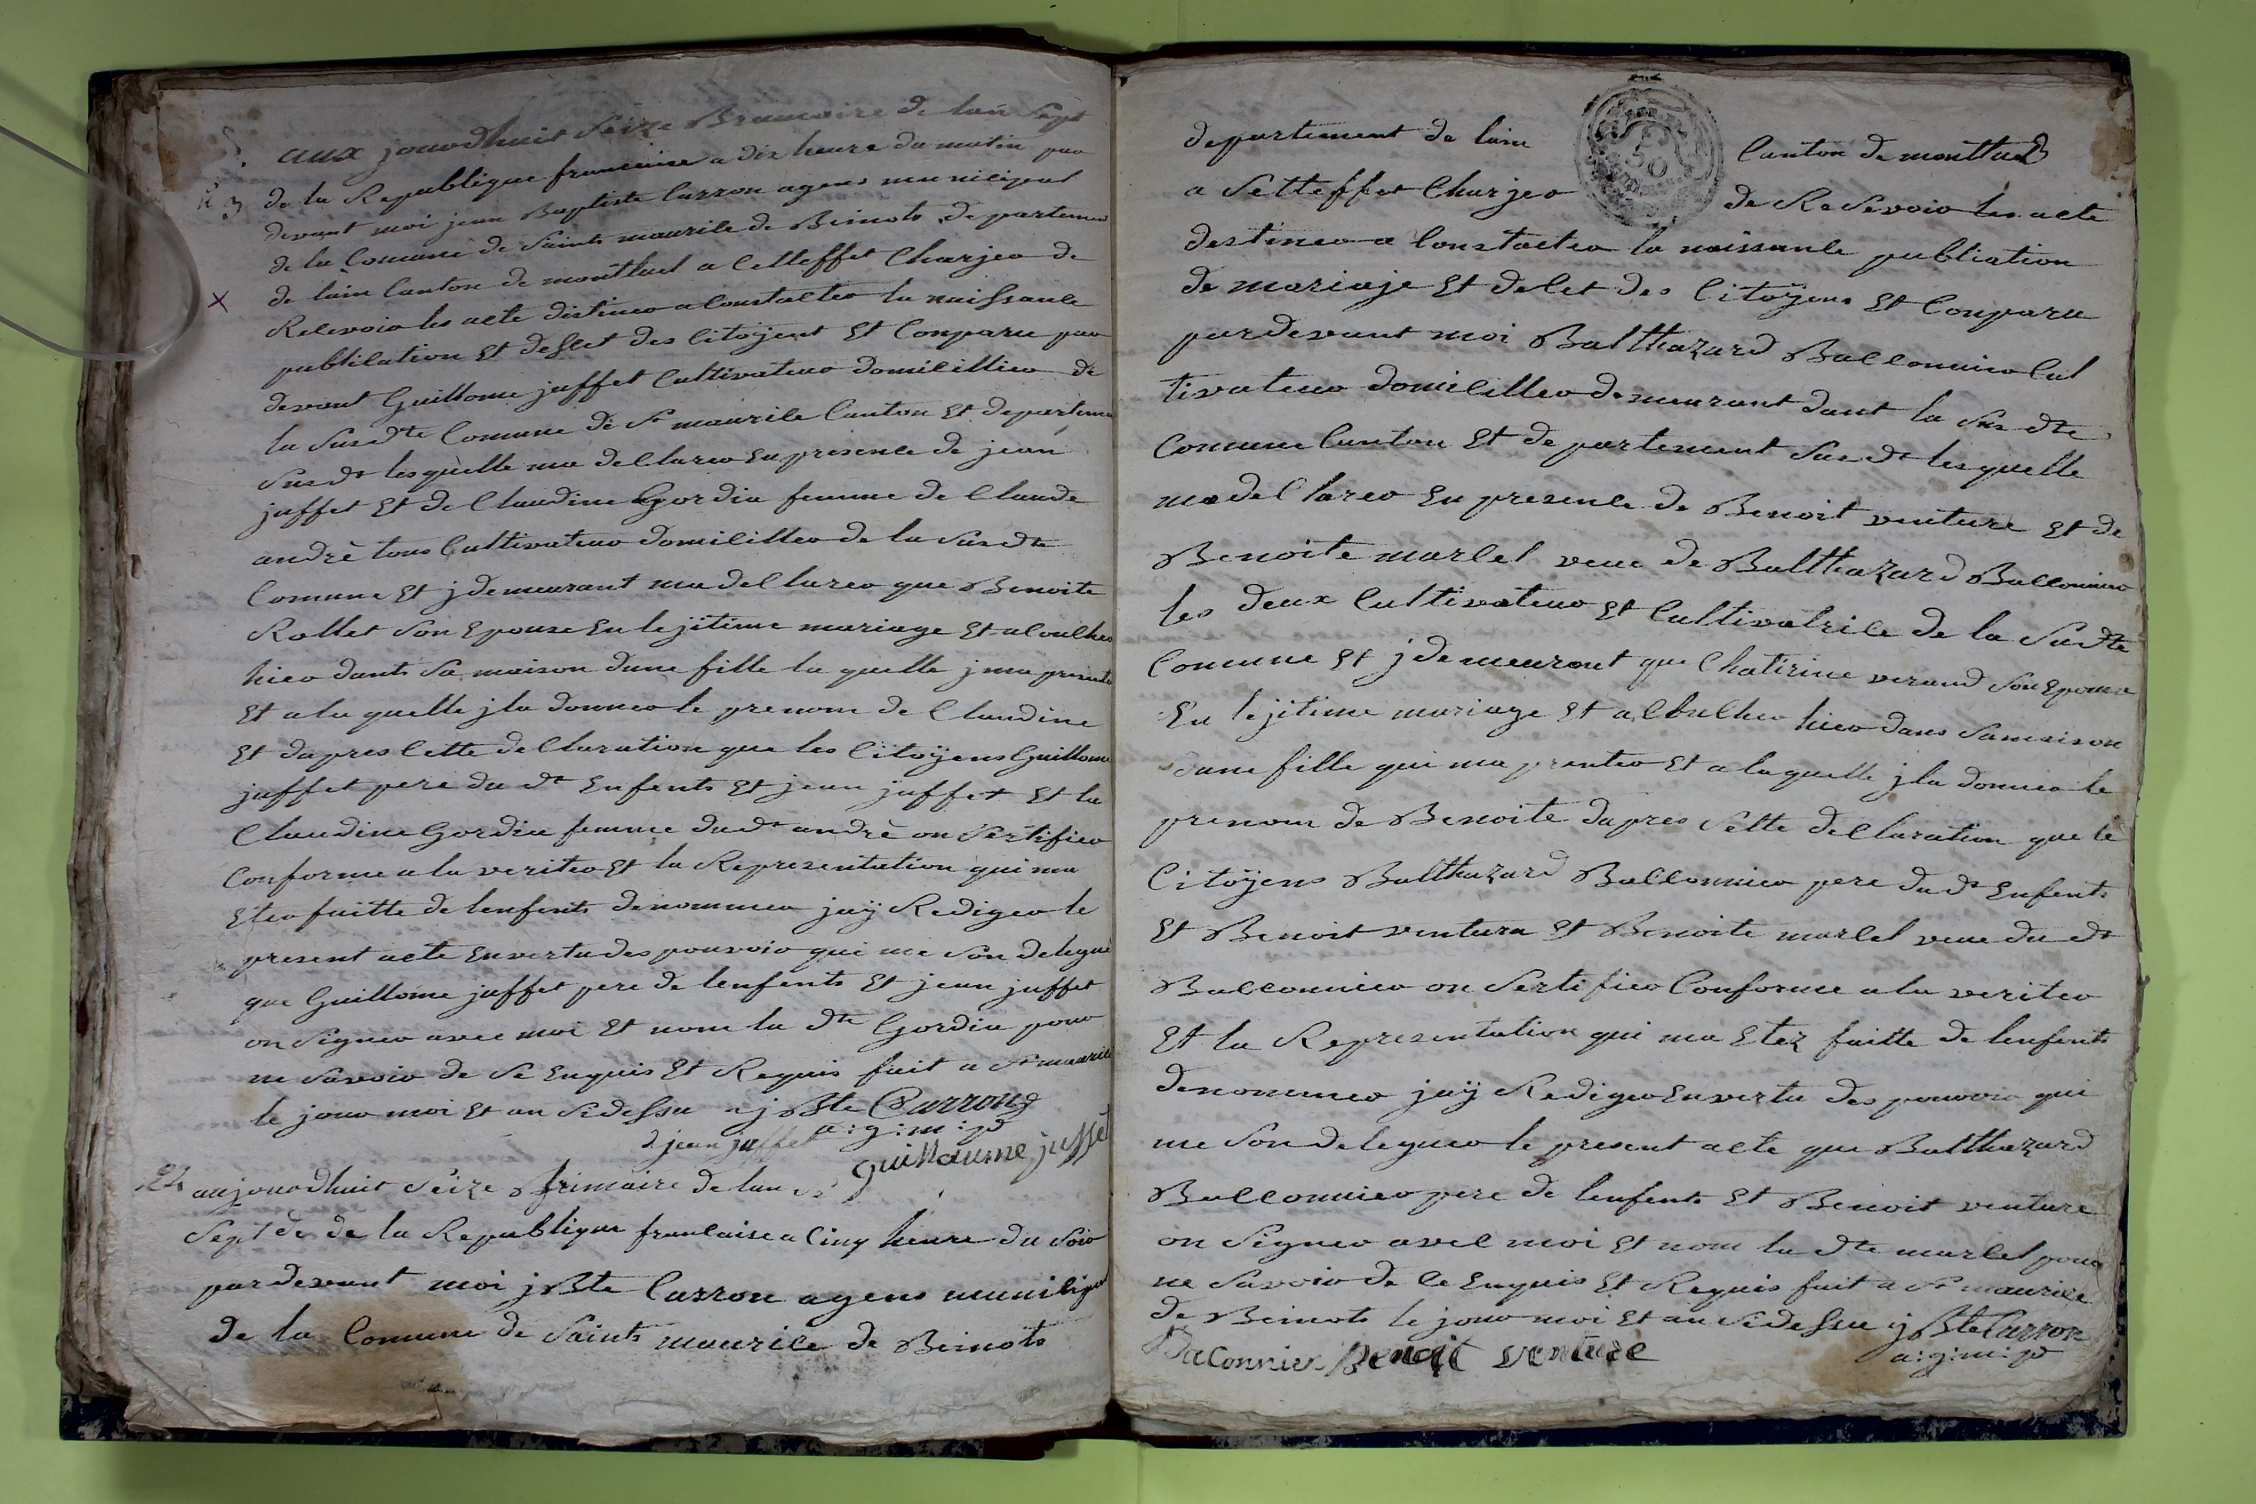 aux jourdhuit Seize Brumaire de lan Sept
n 3 de la Republique francaise a dix heure du matin par
devant moi jean Baptiste Carron agens municipal
de la Comune de Saints maurice de Beinots departemen
de lain Canton de montluel a Cetteffet Charjer de
Recevoir les acte distiner a Constacter la naissance
publication Et desset des Citojent Et Conparu par
devant Guillome juffet Cultivateur domicillier de
la Susdte Comune de St maurice Canton Et departeme
Susdt lesquelle ma declarer En presence de jean
juffet Et de Claudine Gordia femme de Claude
andrè tous Cultivateur domiciller de la Susdte
Comune Et j demeurant ma declarer que Benoite
Rollet Son Epouse En lejitime mariage Et acouche
hier dants Sa maison dune fille la quelle j ma presente
Et a la quelle jla donner le prenom de Claudine
Et dapres Cette declaration que les Citoÿens Guillome
juffet pere du dt Enfents Et jean juffet Et la
Claudine Gordia femme dudt andrè on Sertifier
Conforme a la veriter Et la Representation qui ma
Eter faitte de lenfents denommer jaÿ Rediger le
present acte En vertu des pouvoir qui me Son delegué
que Guillome juffet pere de lenfents Et jean juffet
on Signer avec moi Et nom la dte Gordia pour
ne Savoir de Se Enquis Et Requis fait a St maurice
le jour moi Et an Sidessu jBte Carron
a:g:m:p
jean juffet
Guillaume juffet
aujourdhuit Seize frimaire de lan
Sept de la Republique francaise a Cinq heure du Soir
pardevant moi jBte Carron agens municipal
de la Comune de Saints maurice de Beinots
departement de lain Canton de montluel
a Setteffet Charjer de Resevoir les acte
destiner a Constacter la naissance publiation
de mariaje Et decet des Citoÿens Et Conparu
pardevant moi Balthazard Ballonnier Cul
tivateur domiciller demeurant dant la Susdte
Comune Canton Et departement Susdt lesquelle
ma declarer En presence de Benoit venture Et de
Benoite marcel veue de Balthazard Ballonnier
les deux Cultivateur Et Cultivatrice de la Susdte
Comune Et j demeuront que Chatirine verand Son Epouse
En lejitime mariage Et acoucher hier dans Samaison
dune fille qui ma prenter Et a laquelle jla donner le
prenom de Benoite dapres Sette declaration que le
Citoÿens Balthazard Ballonnier pere du dt Enfents
Et Benoit ventura Et Benoite marcel veue du dt
Ballonnier on Sertifier Conforme a la veriter
Et la Representation qui ma Etez faitte de lenfents
denommer jaÿ Rediger En vertu des pouvoir qui
me Son deleguer le present acte que Balthazard
Ballonnier pere de lenfents Et Benoit venture
on Signer avec moi Et nom la dte marcel pour
ne Savoir de Ce Enquis Et Requis fait a St maurice
de Beinots le jour moi Et an Sidessu jBte Carron
a:g:m:p
Baconnier Benoit venture